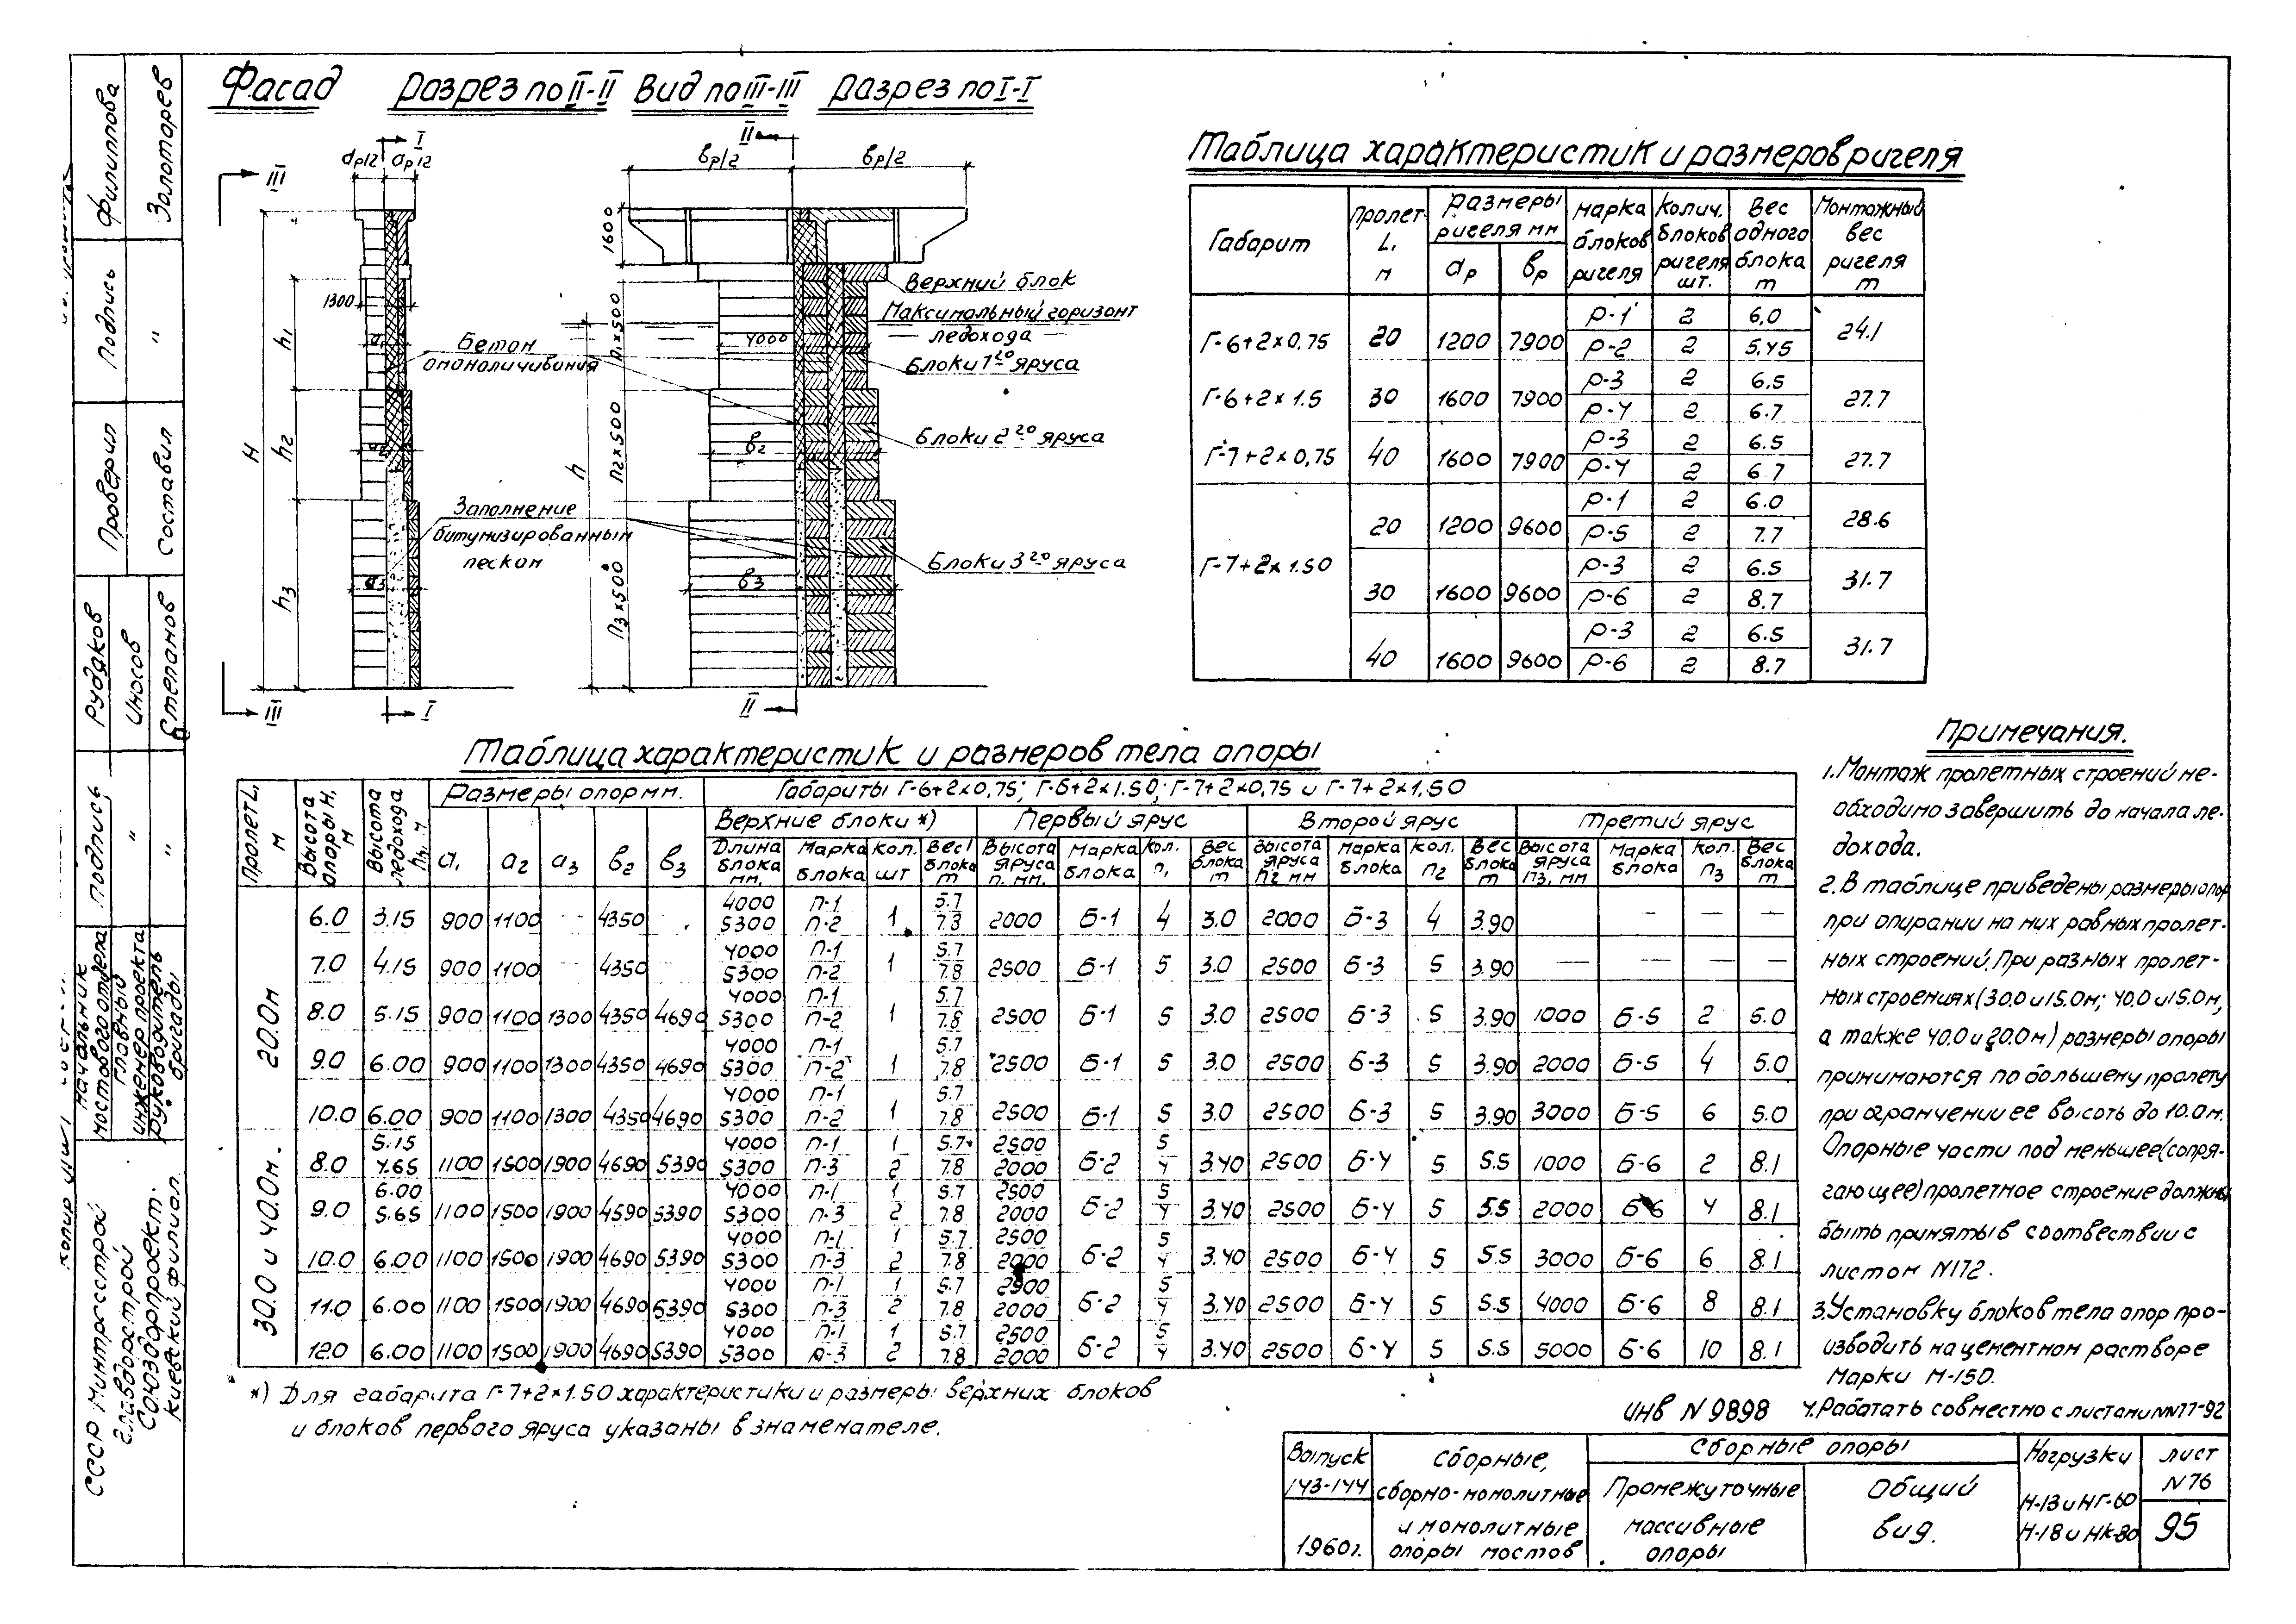 Фасад
Разрез по II-II
Вид по III-III
Разрез по I-I
I
II
III
ар/2
вр/2
вр/2
1600
1300
4000
h₁
h₂
h₃
H
h
n₁×500
n₂×500
n₃×500
в₂
в₃
Бетон
омоноличивания
Заполнение
битумизированным
песком
Верхний блок
Максимальный горизонт
ледохода
Блоки 1го яруса
Блоки 2го яруса
Блоки 3го яруса
III
I
II
Таблица характеристик и размеров ригеля
Габарит | Пролет L, м | Размеры ригеля мм ар | вр | Марка блоков ригеля | Колич. блоков ригеля шт. | Вес одного блока т | Монтажный вес ригеля т
Г-6+2×0,75 | 20 | 1200 | 7900 | Р-1 | 2 | 6,0 | 24.1
Р-2 | 2 | 5,45
Г-6+2×1.5 | 30 | 1600 | 7900 | Р-3 | 2 | 6.5 | 27.7
Р-4 | 2 | 6.7
Г-7+2×0,75 | 40 | 1600 | 7900 | Р-3 | 2 | 6.5 | 27.7
Р-4 | 2 | 6.7
Г-7+2×1.50 | 20 | 1200 | 9600 | Р-1 | 2 | 6.0 | 28.6
Р-5 | 2 | 7.7
30 | 1600 | 9600 | Р-3 | 2 | 6.5 | 31.7
Р-6 | 2 | 8.7
40 | 1600 | 9600 | Р-3 | 2 | 6.5 | 31.7
Р-6 | 2 | 8.7
Таблица характеристик и размеров тела опоры
Пролет L, м | Высота опоры H, м | Высота ледохода h, м | Размеры опор мм. | Габариты Г-6+2×0,75; Г-6+2×1.50; Г-7+2×0,75 и Г-7+2×1,50
Верхние блоки *) | Первый ярус | Второй ярус | Третий ярус
а₁ | а₂ | а₃ | в₂ | в₃ | Длина блока мм. | Марка блока | Кол. шт | Вес блока т | Высота яруса п. мм. | Марка блока | Кол. n₁ | Вес блока т | Высота яруса п2 мм | Марка блока | Кол. n₂ | Вес блока т | Высота яруса п3, мм | Марка блока | Кол. n₃ | Вес блока т
20.0м
6.0 | 3.15 | 900 | 1100 | - | 4350 | - | 4000/5300 | П-1/П-2 | 1 | 5.7/7.8 | 2000 | Б-1 | 4 | 3.0 | 2000 | Б-3 | 4 | 3.90 | — | — | —
7.0 | 4.15 | 900 | 1100 | - | 4350 | - | 4000/5300 | П-1/П-2 | 1 | 5.7/7.8 | 2500 | Б-1 | 5 | 3.0 | 2500 | Б-3 | 5 | 3.90 | — | — | — | —
8.0 | 5.15 | 900 | 1100 | 1300 | 4350 | 4690 | 4000/5300 | П-1/П-2 | 1 | 5.7/7.8 | 2500 | Б-1 | 5 | 3.0 | 2500 | Б-3 | 5 | 3.90 | 1000 | Б-5 | 2 | 5.0
9.0 | 6.00 | 900 | 1100 | 1300 | 4350 | 4690 | 4000/5300 | П-1/П-2 | 1 | 5.7/7.8 | 2500 | Б-1 | 5 | 3.0 | 2500 | Б-3 | 5 | 3.90 | 2000 | Б-5 | 4 | 5.0
10.0 | 6.00 | 900 | 1100 | 1300 | 4350 | 4690 | 4000/5300 | П-1/П-2 | 1 | 5.7/7.8 | 2500 | Б-1 | 5 | 3.0 | 2500 | Б-3 | 5 | 3.90 | 3000 | Б-5 | 6 | 5.0
30.0 и 40.0м.
8.0 | 5.15/4.65 | 1100 | 1500 | 1900 | 4690 | 5390 | 4000/5300 | П-1/П-3 | 1/2 | 5.7/7.8 | 2500/2000 | Б-2 | 5/4 | 3.40 | 2500 | Б-4 | 5 | 5.5 | 1000 | Б-6 | 2 | 8.1
9.0 | 6.00/5.65 | 1100 | 1500 | 1900 | 4590 | 5390 | 4000/5300 | П-1/П-3 | 1/2 | 5.7/7.8 | 2500/2000 | Б-2 | 5/4 | 3.40 | 2500 | Б-4 | 5 | 5.5 | 2000 | Б-6 | 4 | 8.1
10.0 | 6.00 | 1100 | 1500 | 1900 | 4690 | 5390 | 4000/5300 | П-1/П-3 | 1/2 | 5.7/7.8 | 2500/2000 | Б-2 | 5/4 | 3.40 | 2500 | Б-4 | 5 | 5.5 | 3000 | Б-6 | 6 | 8.1
11.0 | 6.00 | 1100 | 1500 | 1900 | 4690 | 5390 | 4000/5300 | П-1/П-3 | 1/2 | 5.7/7.8 | 2500/2000 | Б-2 | 5/4 | 3.40 | 2500 | Б-4 | 5 | 5.5 | 4000 | Б-6 | 8 | 8.1
12.0 | 6.00 | 1100 | 1500 | 1900 | 4690 | 5390 | 4000/5300 | П-1/П-3 | 1/2 | 5.7/7.8 | 2500/2000 | Б-2 | 5/4 | 3.40 | 2500 | Б-4 | 5 | 5.5 | 5000 | Б-6 | 10 | 8.1
*) Для габарита Г-7+2×1.50 характеристики и размеры верхних блоков
и блоков первого яруса указаны в знаменателе.
Примечания.
1. Монтаж пролетных строений не-
обходимо завершить до начала ле-
дохода.
2. В таблице приведены размеры опор
при опирании на них равных пролет-
ных строений. При разных пролет-
ных строениях (30.0 и 15.0м; 40.0 и 15.0м,
а также 40.0 и 20.0м) размеры опоры
принимаются по большему пролету
при огранчении ее высоть до 10.0м.
Опорные части под меньшее (сопря-
гающее) пролетное строение должны
быть приняты в соотвествии с
листом N172.
3. Установку блоков тела опор про-
изводить на цементном растворе
марки М-150.
4. Рабатать совместно с листами NN77-92
инв N 9898
Выпуск
143-144
1960г.
Сборные,
сборно-монолитные
и монолитные
опоры мостов
Сборные опоры
Промежуточные
массивные
опоры
Общий
вид.
Нагрузки
Н-13 и НГ-60
Н-18 и НК-80
лист
N76
95
СССР Минтрансстрой
Главдорстрой
Союздорпроект
Киевский филиал
Начальник
мостового отдела
Главный
инженер проекта
Руководитель
бригады
Подпись
"
"
Рудаков
Иносов
Степанов
Проверил
Составил
Подпись
"
Филиппова
Золотарев